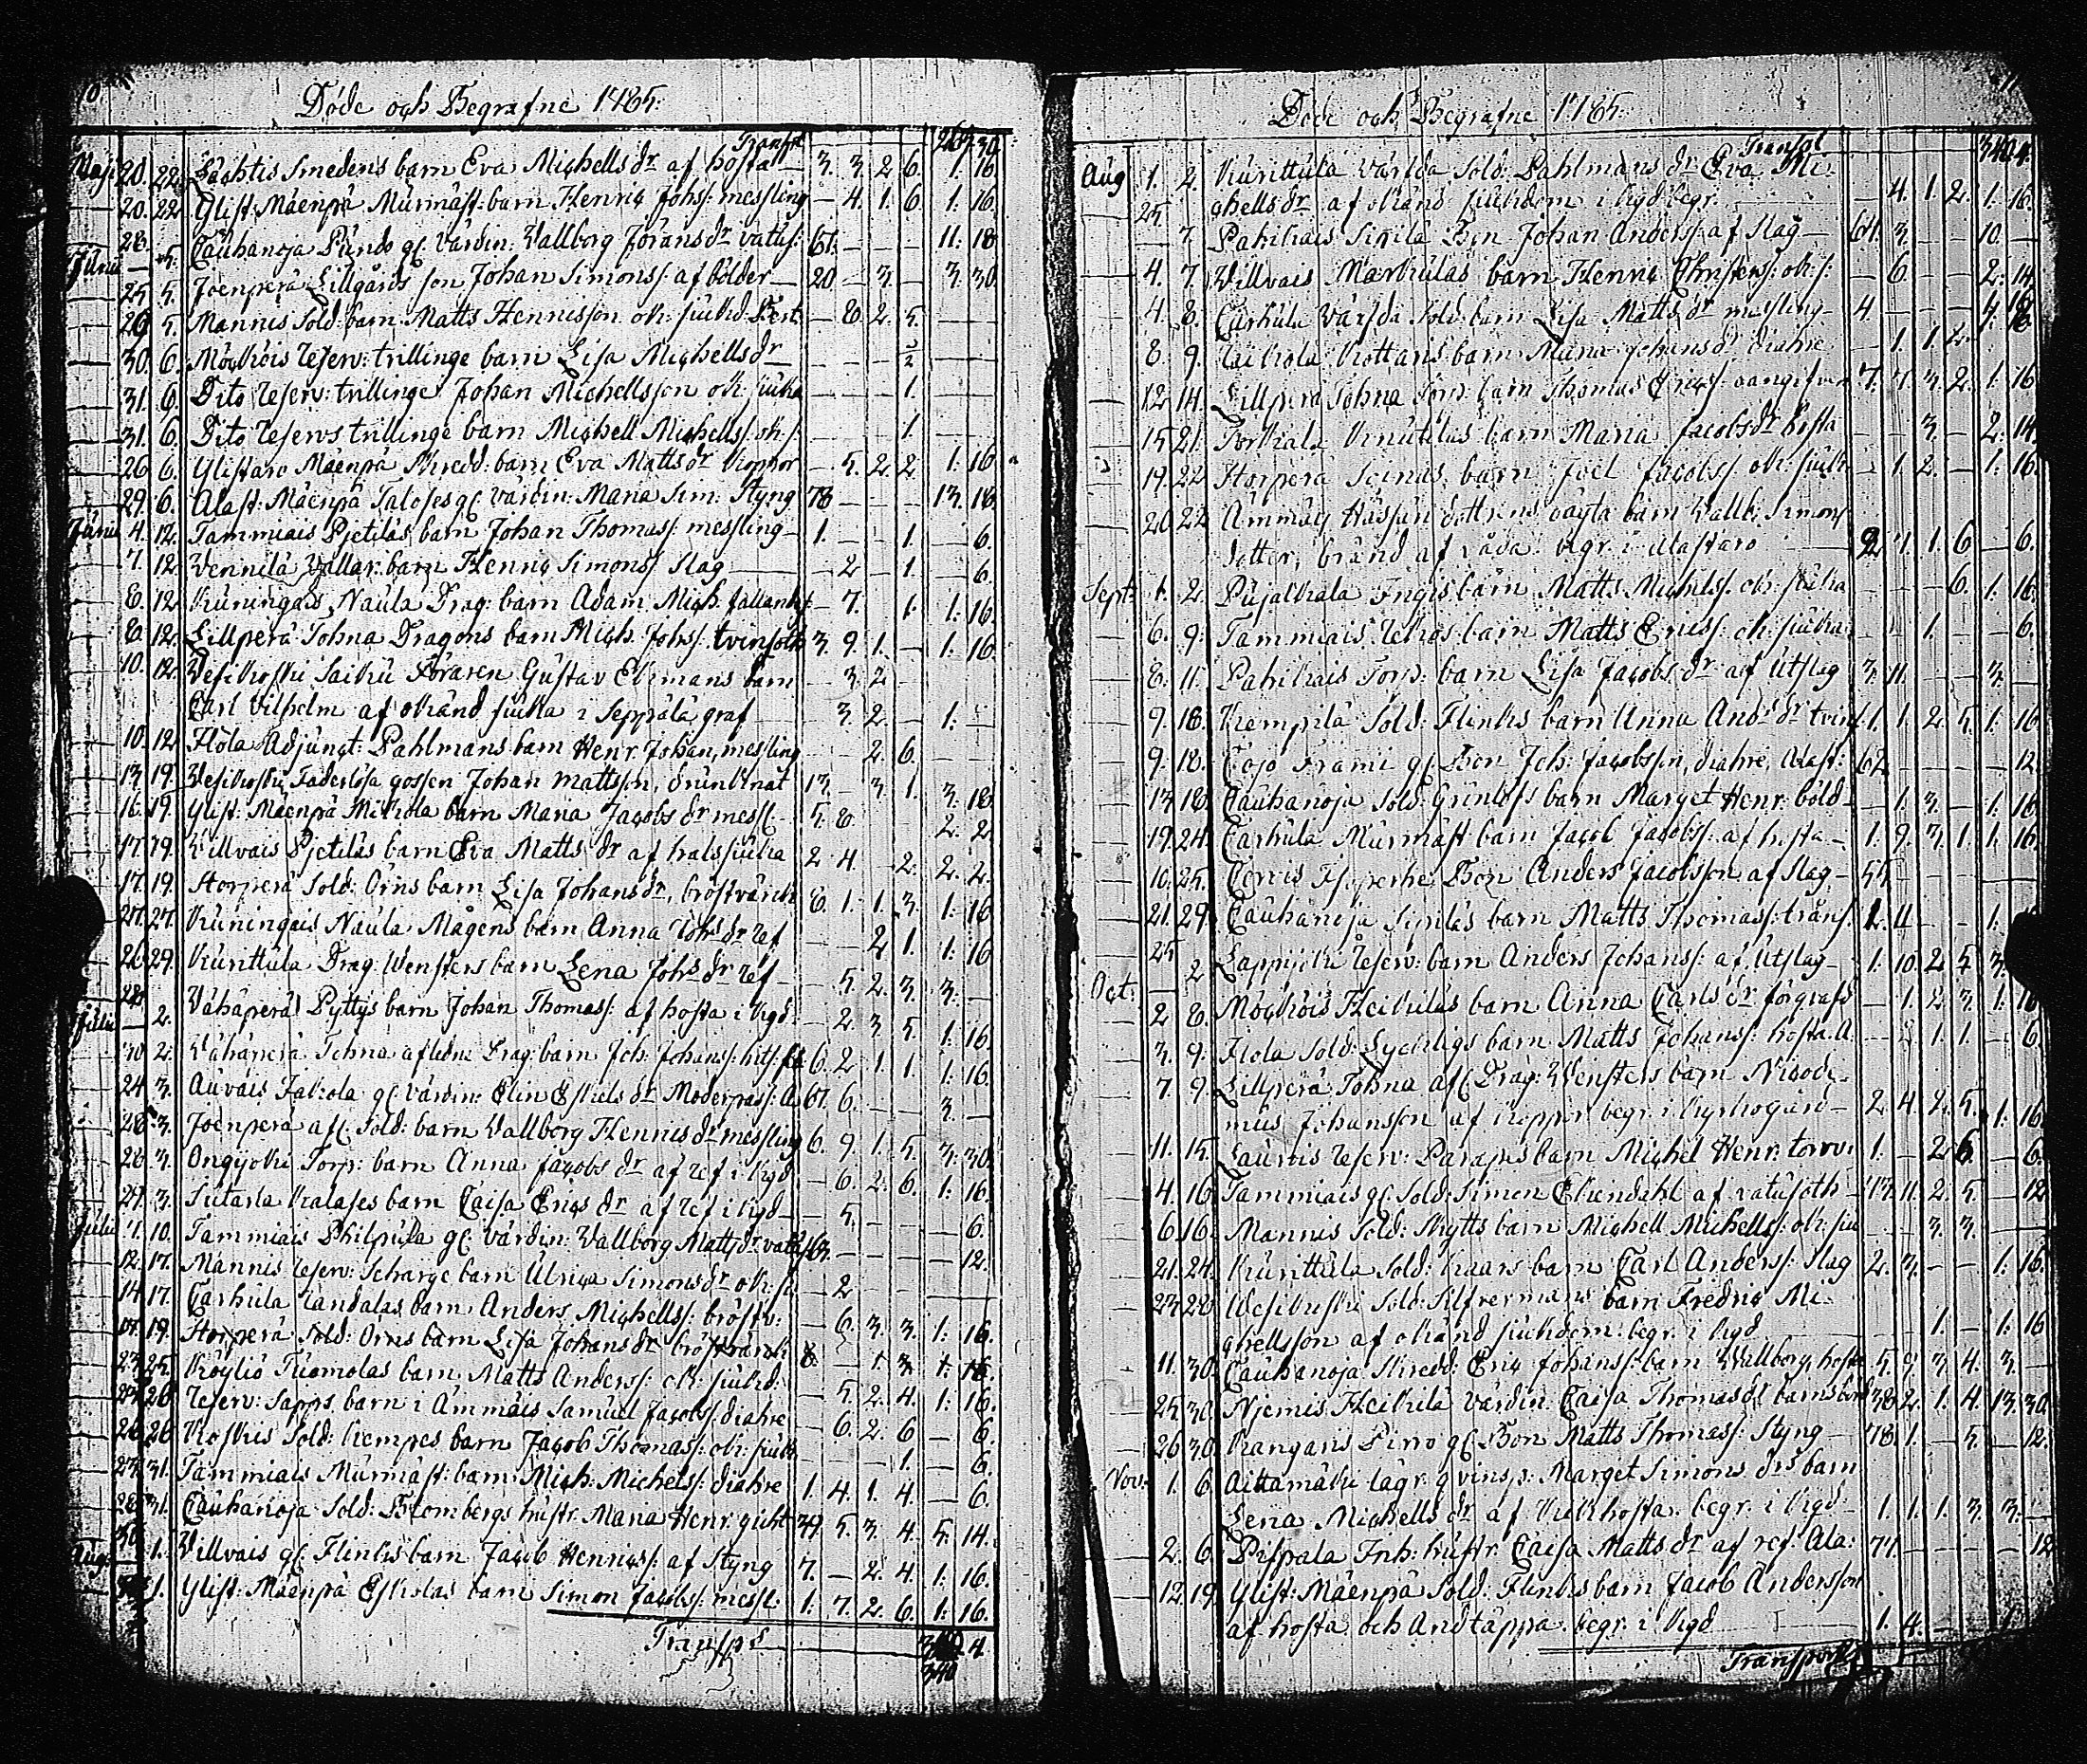 Döde och Begrafne 1785.
Transp. 267. 30
Maji 20. 22. Lachtis Smedens barn Eva Michells dr af hosta 3. 3. 2. 6. 1. 16.
20. 22 Ylist: Mäenpä Murmäst: barn Henric Johs: messling 4. 1. 6. 1. 16.
28. Cauhanoja Punds gl: värdin: Vallborg Jörans dr vatus: 61. 11. 18
Junii 5.
25. 5. Joenperä Lillgårds son Johan Simonss: af bölder 20 3. 3. 30.
29. 5. Mannis Sold: barn Matts Hennisson ok: siukd 8. 2. 5.
30. 6. Möckois reserv: trillinge barn Lisa Michells dr
31. 6. Dito reserv: trillinge Johan Michellsson ok: siuka 1.
31. 6. Dito reservs trillinge barn Michell Michellss: ok: s: 1.
26 6. Ylistaro Mäenpä Skredd: barn Eva Matts dr koppor 5. 2. 2 1. 16
29. 6. Alast: Mäenpä Taloses gl: värdin: Maria Sim: Styng 78 13. 18.
Junii 4. 12. Tammiais Pjetilas barn Johan Thomass: messling 1. 1. 6.
7. 12 Vennilä Vallar: barn Henric Simonss Slag 2 1. 6.
8. 12 Kuningais Naula Drag: barn Adam Mich. fallands: 7. 1. 1. 16.
8. 12. Lillperä Tohna Dragons barn Mich. Johss: tvinsoth 3. 9. 1. 1. 16
10. 12. Vesikoski Saiku Föraren Gustav Ekmans barn 3. 2
Carl Vilhelm af okänd siuka i Seppälä graf 3. 2. 1.
10. 12 Flola Adjunct: Pahlmans barn Henr. Johan, messling 2. 6.
13. 19. Vesikoski Faderlösa gossen Johan Mattsson, drunknat 13. 3. 1. 3. 18
16. 19. Ylist: Mäenpä Mickola barn Maria Jacobs dr messl: 5. 8. 2. 2
17. 19. Villvais Pjetilas barn Eva Matts dr af halssiuka 2. 4 2. 2. 2.
17. 19. Storperä Sold: Orns barn Lisa Johans dr, bröstvärck 8. 1. 1. 3. 1. 16
27. 27. Kuningais Naula Mågens barn Anna Johs dr ref 2 1. 1. 16
26 29. Kurittula Drag: Wensters barn Lena Johs dr ref 5. 2. 3. 3.
28. Vähäperä Pyttys barn Johan Thomass: af hosta i Kgd. 2. 3 5. 1. 16
Julii 2.
30. 2. Vähäperä Tohna afledne Drag: barn Joh: Johanss: 6. 2. 1 1 1. 16.
24. 3. Auvais Jakola gl: värdin: Elin Eskels dr Moderpass: A 67. 6. 3.
28. 3. Joenperä afl: Sold: barn Vallborg Hennis dr messling 6. 9. 1. 5. 3. 30.
28. 3. Ongijoki Torp: barn Anna Jacobs dr af ref i Kgd 6. 2. 6. 1. 16.
27. 3. Sutarla Kalases barn Caisa Erics dr af ref i Kgd 5. 6.
Julii 7. 10. Tammiais Philpula gl: värdin: Vallborg Matts dr 63. 12.
12. 17. Mannis reserv: Scharge barn Ulrica Simons dr ok: s: 2
14. 17. Carhula Randalas barn Anders Michellss: bröstv: 6. 3. 3. 1. 16.
17. 19. Storperä Sold: Orns barn Lisa Johans dr bröstvärck 8. 1. 3. 1. 16.
23. 25. Köyliö Tuomolas barn Matts Anderss: ok: siukd: 5. 2. 4. 1. 16.
24. 26. Reserv: Sapps barn i Ämmäis Samuel Jacobss: diahre 6. 2. 6 6.
26. 26 Koskis Sold: Kempes barn Jacob Thomass: ok: siuk 1. 6.
27. 31. Tammiais Murmäst: barn Mich: Michelss: diahre 1. 4. 1. 4. 6.
28. 31. Cauhanoja Sold: Blombergs hustr: Maria Henr: gicht 34. 5. 3. 4. 5. 14.
30. Villvais gl: Flinkis barn Jacob Henricss: af Styng 7. 2. 4. 1. 16.
Aug. 1.
1. Ylist: Mäenpä Eskolas barn Simon Jacobss: messl: 1. 7. 2. 6. 1. 16.
Transpt 340. 4.
340
Döde och Begrafne 1785.
Transpt 340. 4.
Aug 1. 2. Kurittula Världa Sold: Pahlmans dr Eva Mi-
chells dr af okänd siukdom i Kgd begr. 4. 1. 2. 1. 16.
25 7. Pahikais Sikilä Bon Johan Anderss: af Slag 64. 3. 10.
4. 7. Villvais Markulas barn Henric Christerss: ok: s: 6. 2. 14.
4. 8. Carhula Världa Sold: barn Lisa Matts dr messling 4
8. 9. Kottaris barn Maria Johans dr diahre 1. 1. 2.
12 14. Lillperä Tohna Torp: barn Thomas Ericss: 7. 7. 3. 2. 1. 16
15 21. Knutilas barn Maria Jacobs dr hosta 3. 2. 14.
19. 22. Storperä barn Joel Jacobss: ok: siuk: 1. 2. 1. 16.
20 22 Ämmäis Hassan dottrens oäyta barn Vallb: Simons
dotter, bränd af våda. begr. i Alastaro 2 7. 1. 6. 6.
Sept: 1. 2. Pujalkala Ingis barn Matts Michelss: ok: siuka 6. 1. 16
6. 9. Tammiais barn Matts Ericss: ok: siuka 1. 6.
8. 11. Pahikais Torp: barn Lisa Jacobs dr af Utslag 3. 11. 3.
9. 18. Kempilä Sold: Flinks barn Anna Ands dr tvins 1. 1. 2. 5. 1. 16
9. 18. Cojo Frami gl: Bon Joh: Jacobssn, diahre, Alast: 62 12.
13. 18. Cauhanoja Sold: Grünlöfs barn Marget Henr: böld 1. 3. 1. 16.
19. 24. Carhula Murmäst: barn Jacob Jacobss: af hosta 1. 9. 3. 1. 1. 16
18. 25. Bon Anders Jacobsson af Slag 55
21. 29. Cauhanoja barn Matts Thomass: 2. 11 1.
25 2 Lappijoki reserv: barn Anders Johanss: af Utslag 1. 10. 2. 5. 3.
Oct.
2 8. Möckois Heikilas barn Anna Carls dr 1. 2. 3. 1. 16
3. 9. Flola Sold: Lyckligs barn Matts Johanss: hosta. A: 2. 1. 1. 6.
7. 9. Lillperä Tohna afl: Drag: Wensters barn Nicode-
mus Johansson af begr. i Kyrkogård 2. 4. 2. 5. 1. 16
11. 15. Lauris reserv: barn Michel Henr: torrv: 1. 2. 6. 6.
4. 16. Tammiais gl: Sold: Simon Ekendahl af vatusoth 47. 11. 2. 5. 12
6. 16. Mannis Sold: Skytts barn Michell Michells: ok: siu 3. 3.
21. 24. Kurittula Sold: Kaars barn Carl Anderss: Slag 2. 3. 1. 16.
23. 28 Wesikoski Sold: Silfvermans barn Fredric Mi-
chellsson af okänd siukdom: begr. i Kgd 1. 1. 16
11. 30. Cauhanoja Skredd: Eric Johanss: barn Wallborg hosta 5. 9. 3. 4. 3.
25. 30. Njemis Heikilä värdin: Caisa Thomas dr barnsbörd 38. 2. 1. 4. 13. 30.
26 30. Kangaris Pirro gl: Bon Matts Thomass: Styng 78. 1. 5. 12.
Nov: 1. 6. Aittamäki lägr: qvinsp: Marget Simons drs barn
Lena Michells dr af Kickhosta. begr. i Kgd 1. 1. 1. 3. 3.
2. 6. Pispala Inh: hustr: Caisa Matts dr af ref. Ala: 71. 12
12. 19. Ylist: Mäenpä Sold: Flinks barn Jacob Andersson
af hosta och Andtäppa. begr. i Kgd 1. 4.
Transport